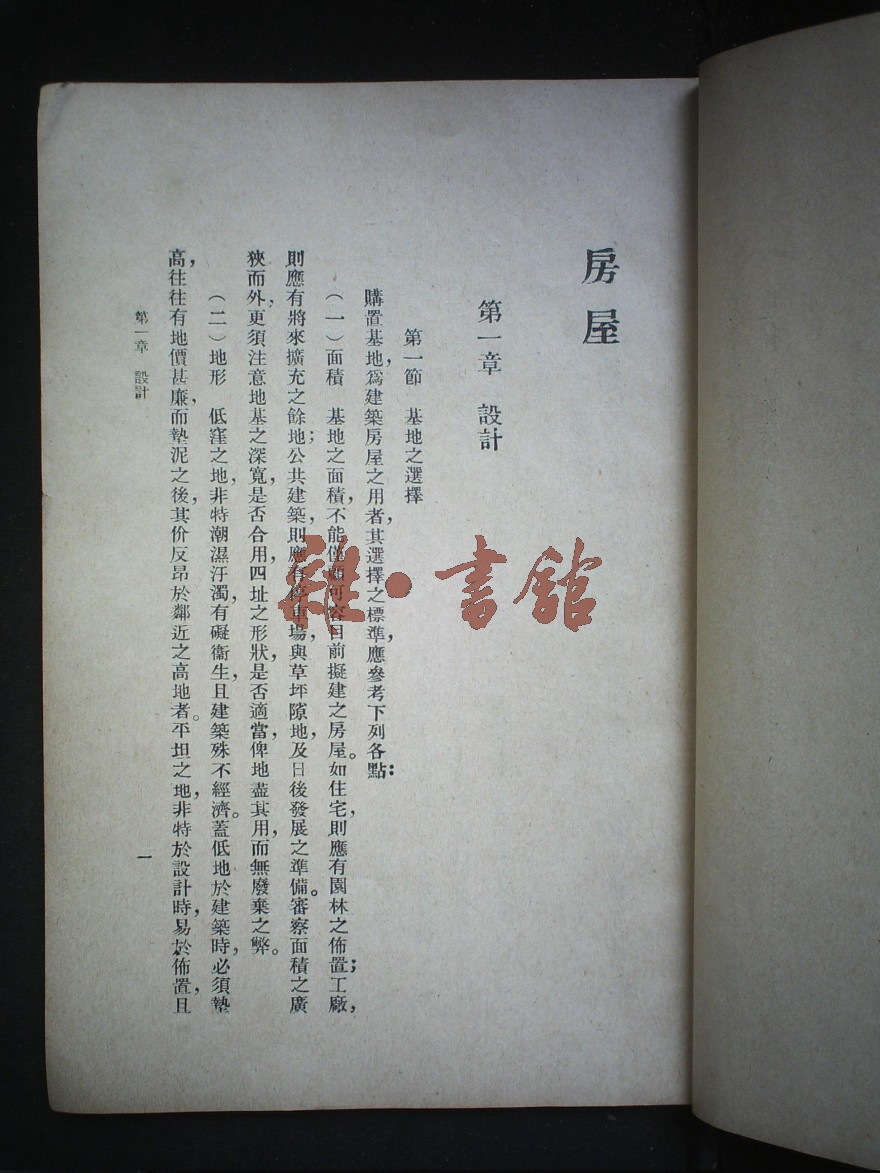 房屋
第一章 設計
第一節 基地之選擇
購置基地，爲建築房屋之用者，其選擇之標準，應參考下列各點：
（一）面積 基地之面積，不能僅顧可容目前擬建之房屋。如住宅，則應有園林之佈置；工廠，
則應有將來擴充之餘地；公共建築，則應有停車場，與草坪隙地，及日後發展之準備。審察面積之廣
狹而外，更須注意地基之深寬，是否合用，四址之形狀，是否適當，俾地盡其用，而無廢棄之弊。
（二）地形 低窪之地，非特潮濕汙濁，有礙衞生，且建築殊不經濟。蓋低地於建築時，必須墊
高，往往有地價甚廉，而墊泥之後，其价反昂於鄰近之高地者。平坦之地，非特於設計時，易於佈置，且
第一章 設計
一
雜·書館